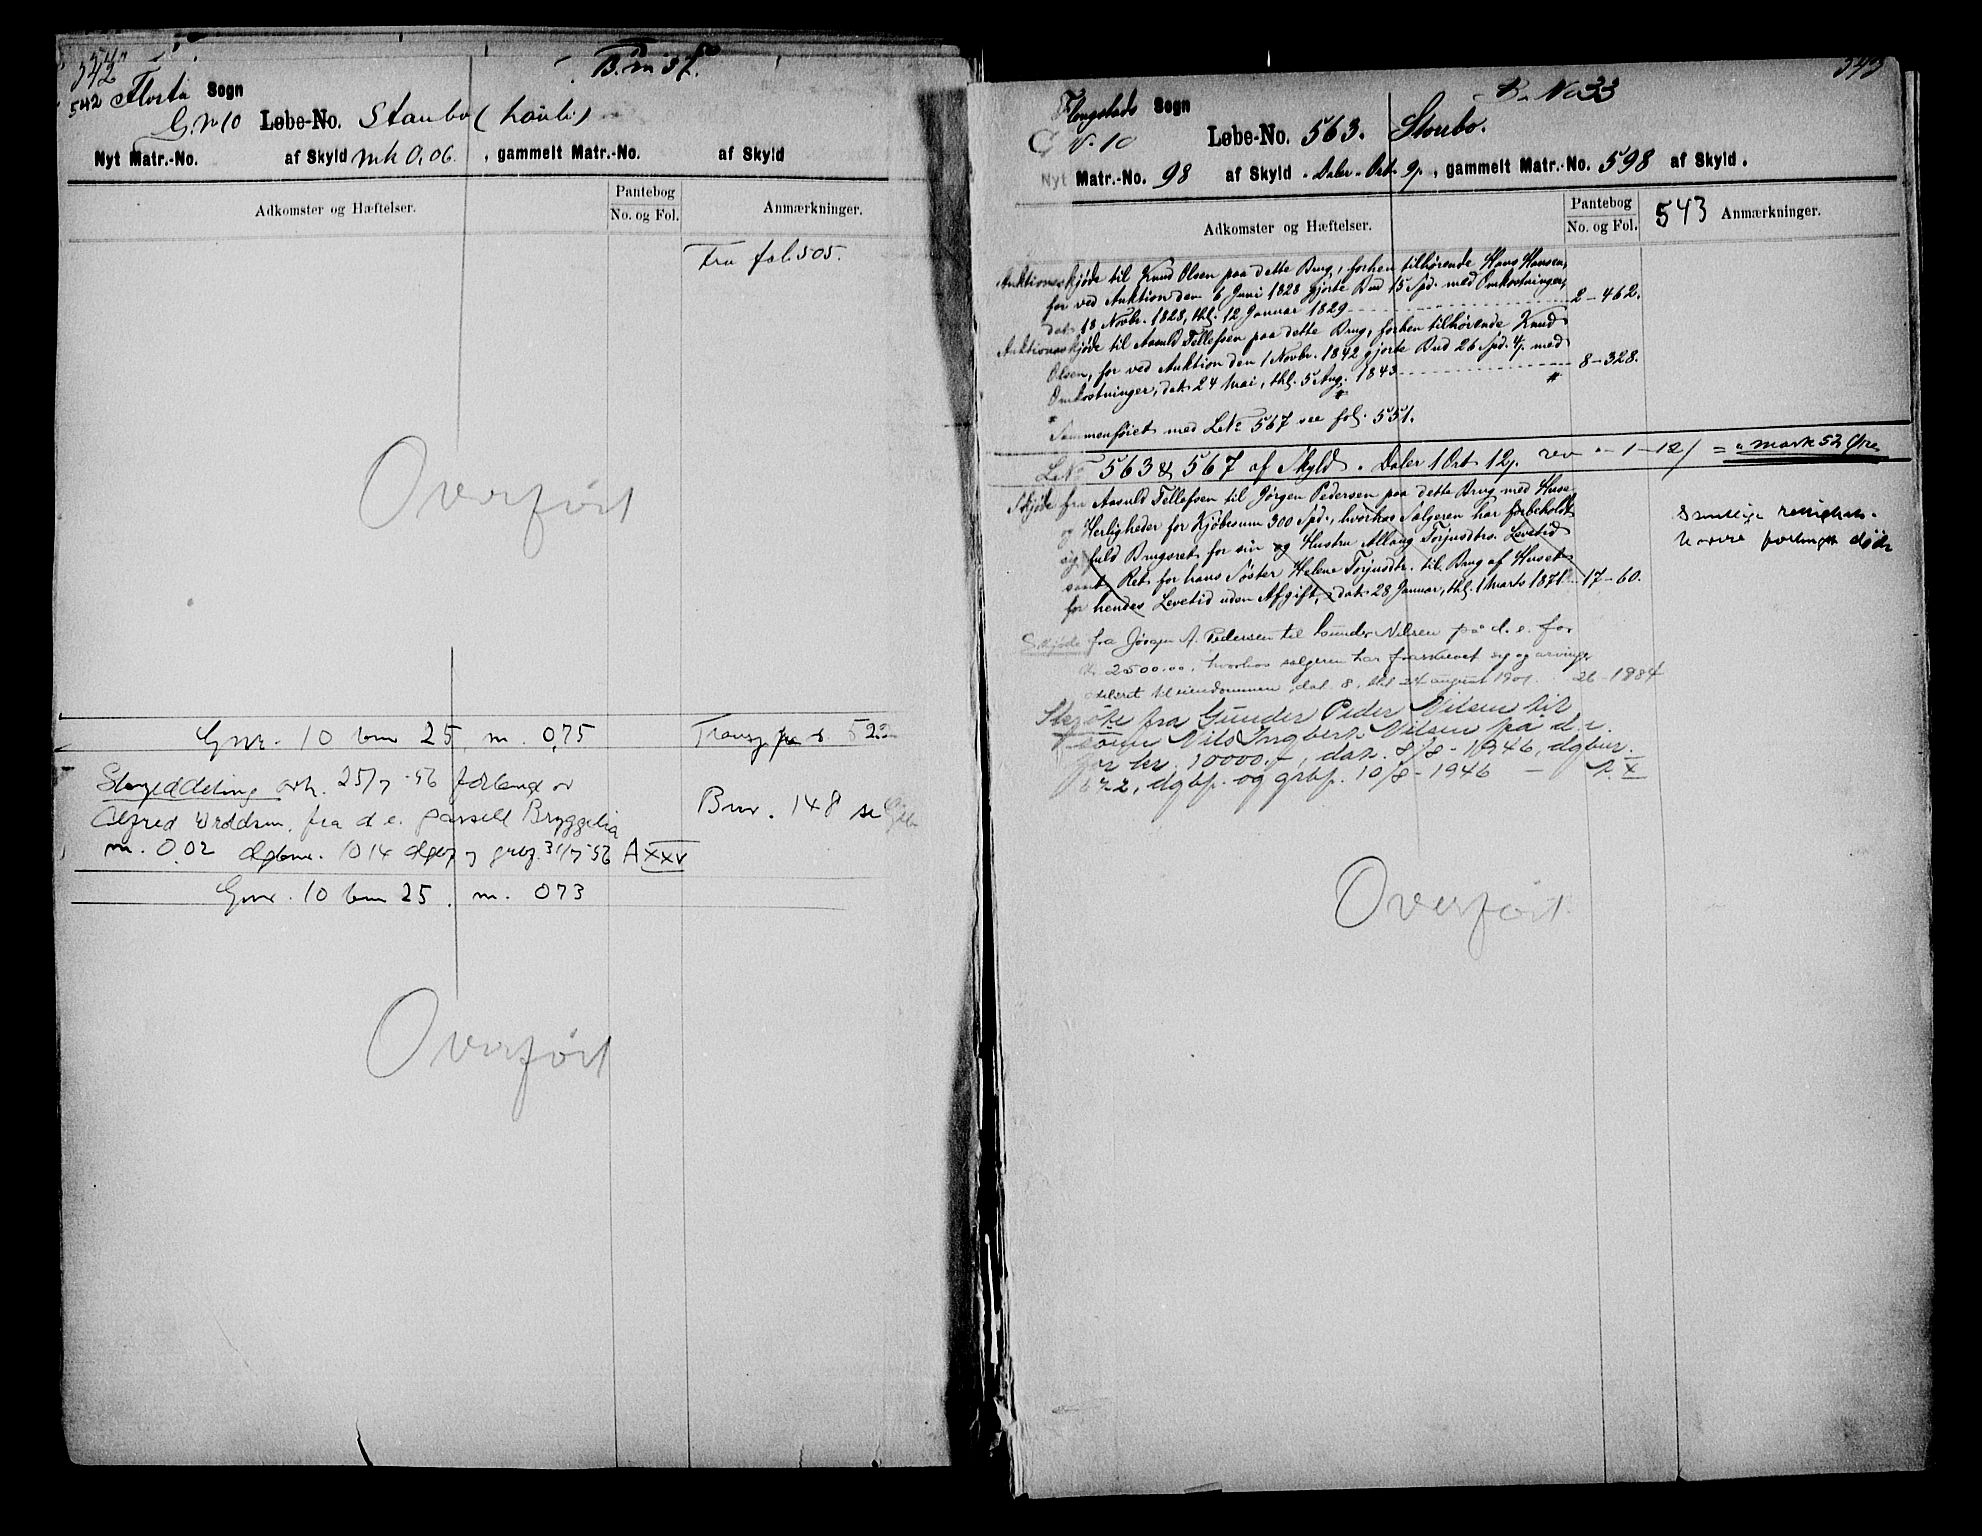 542
542 Flosta Sogn
G.No 10 Løbe-No. Staubo (
Nyt Matr.-No. af Skyld mk 0,06. , gammelt Matr.-No. af Skyld
Adkomster og Hæftelser. Pantebog No. og Fol. Anmærkninger.
Fra fol. 505.
Overført
Gnr. 10 bnr 25, m. 0,75 Transp. fra s. 522
Skyldeling avh. 25/7-56 forlangt av
Alfred fra d. e. parsell Bryggelia Bnr. 148 se
m. 0.02 dgbnr. 1014 dgbf og grbf. 31/7-56 A XXV
Gnr. 10 bnr 25, m. 073
Overført
543
B. No 33
Sogn
No 10 Løbe-No. 563. Stoubo.
Nyt Matr.-No. 98 af Skyld " Daler " Ort 9 , gammelt Matr.-No. 598 af Skyld .
Adkomster og Hæftelser. Pantebog No. og Fol. 543 Anmærkninger.
Auktionsskjøde til Knud Olsen paa dette Brug, forhen tilhørende Hans Hansen,
for ved Auktion den 6 Juni 1828 gjorte Bud 15 Spd. med Omkostninger,
dat. 18 Novbr. 1828, thl. 12 Januar 1829 2-462.
Auktionsskjøde til Aanuld Tellefsen paa dette Brug, forhen tilhørende Knud
Olsen, for ved Auktion den 1 Novbr. 1842 gjorte Bud 26 Spd. med
Omkostninger, dat. 24 Mai, thl. 5 Aug. 1843 8-328.
Sammenføiet med LNo 567 see fol. 551.
LNo 563 & 567 af Skyld " Daler 1 Ort 12 rev " - 1 - 12 = " mark 52 Øre
Skjøde fra Aanuld Tellefsen til Jørgen Pedersen paa dette Brug med Huse
og Herligheder for Kjøbesum 300 Spd., hvorhos Sælgeren har forbeholdt
sig fuld Brugsret for sin og Hustru Torjusdtrs. Levetid
samt Ret for hans Søster Helene Torjusdtr. til Brug af Huset
for hendes Levetid uden Afgift, dat. 28 Januar, thl. 1 Marts 1871 17-60.
Samtlige rettighets-
havere forlengst døde
Skjøde fra Jørgen A. Pedersen til Gunder Nilsen på d. e. for
kr. 2500.00, hvorhos sælgeren har fraskrevet sig og arvinger
odelsret til eiendommen, dat. 8, thl 24 august 1901. 26-1884
Skjøte fra Gunder Peder Nilsen til
sønn Nils Ingbert Nilsen på d. e.
for kr. 10000,-, dat. 8/8-1946, dgbnr.
672, dgbf. og grbf. 10/8-1946 -
Overført